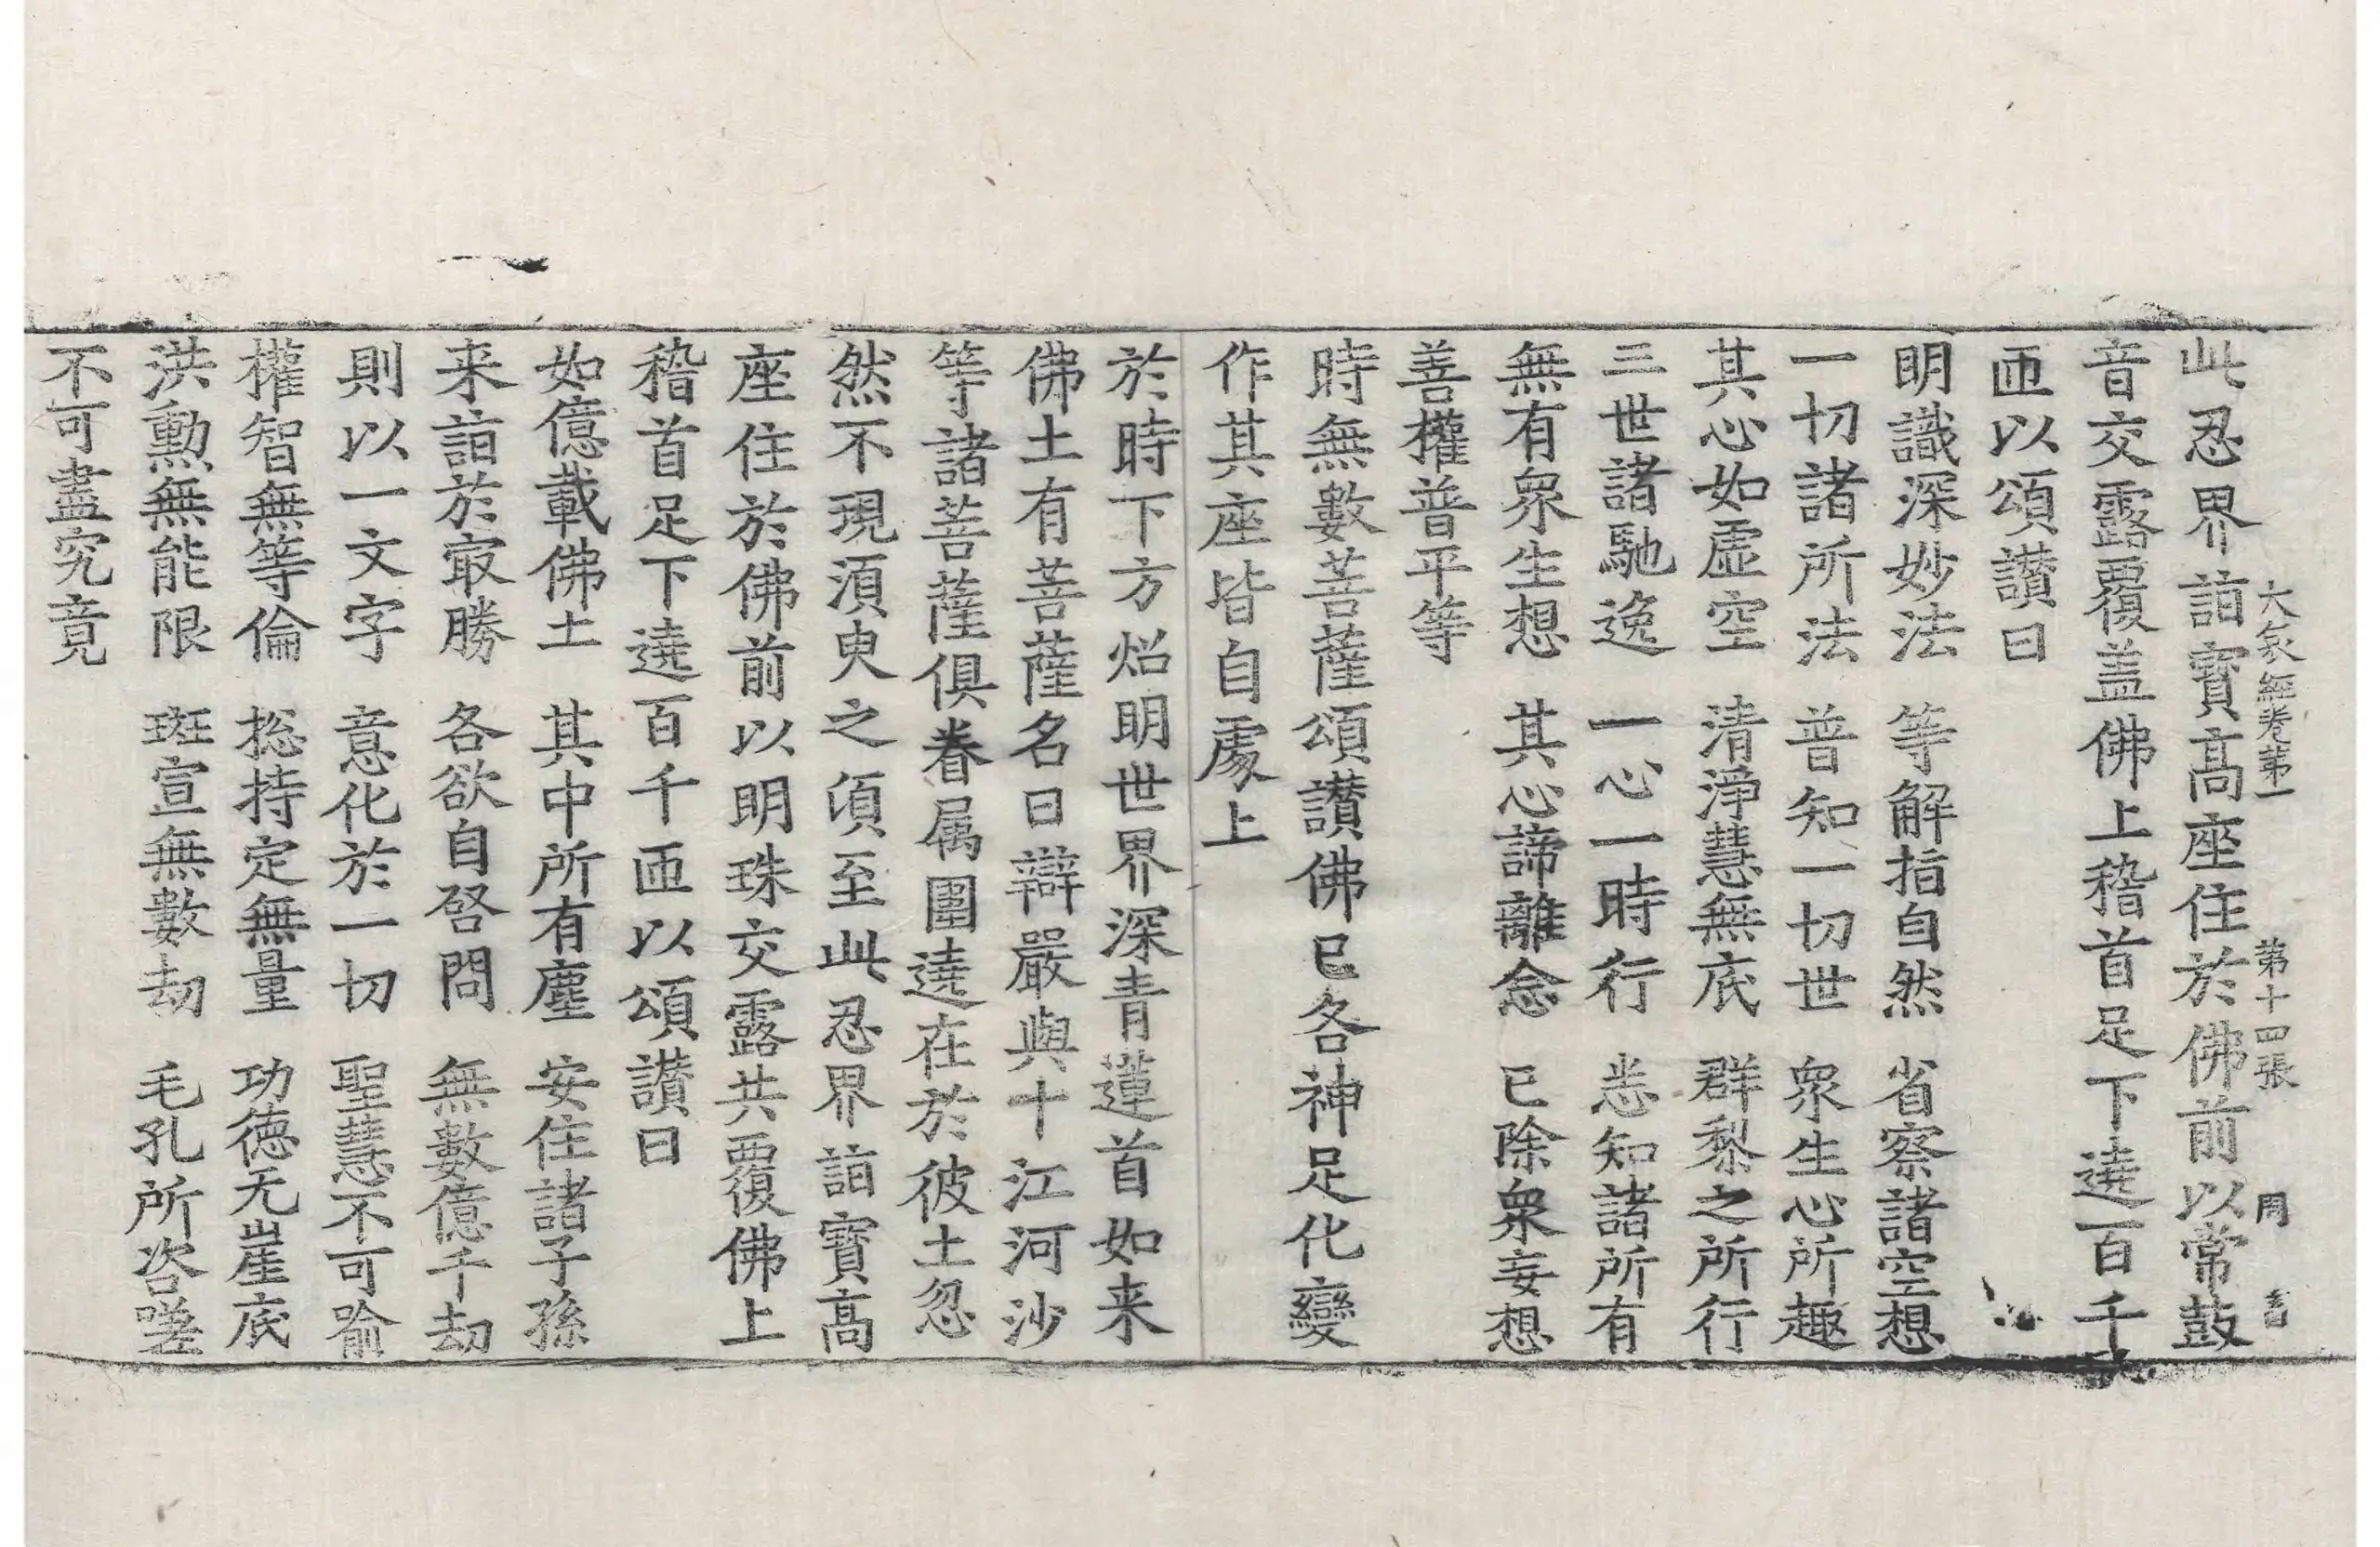 大哀經卷第一　第十四張　周
此忍界詣寶高座住於佛前以常鼓
音交露覆盖佛上稽首足下遶百千
匝以頌讃曰
明識深妙法　等解指自然　省察諸空想
一切諸所法　普知一切世　衆生心所趣
其心如虛空　清淨慧無底　群黎之所行
三世諸馳逸　一心一時行　悉知諸所有
無有衆生想　其心諦離念　已除衆妄想
善權普平等
時無數菩薩頌讃佛已各神足化變
作其座皆自處上
於時下方炤明世界深青蓮首如来
佛土有菩薩名曰辯嚴與十江河沙
等諸菩薩俱眷属圍遶在於彼土忽
然不現須臾之頃至此忍界詣寶高
座住於佛前以明珠交露共覆佛上
稽首足下遶百千匝以頌讃曰
如億載佛土　其中所有塵　安住諸子孫
来詣於㝡勝　各欲自啓問　無數億千劫
則以一文字　意化於一切　聖慧不可喻
權智無等倫　摠持定無量　功德无崖底
洪勲無能限　班宣無數劫　毛孔所咨嗟
不可盡究竟